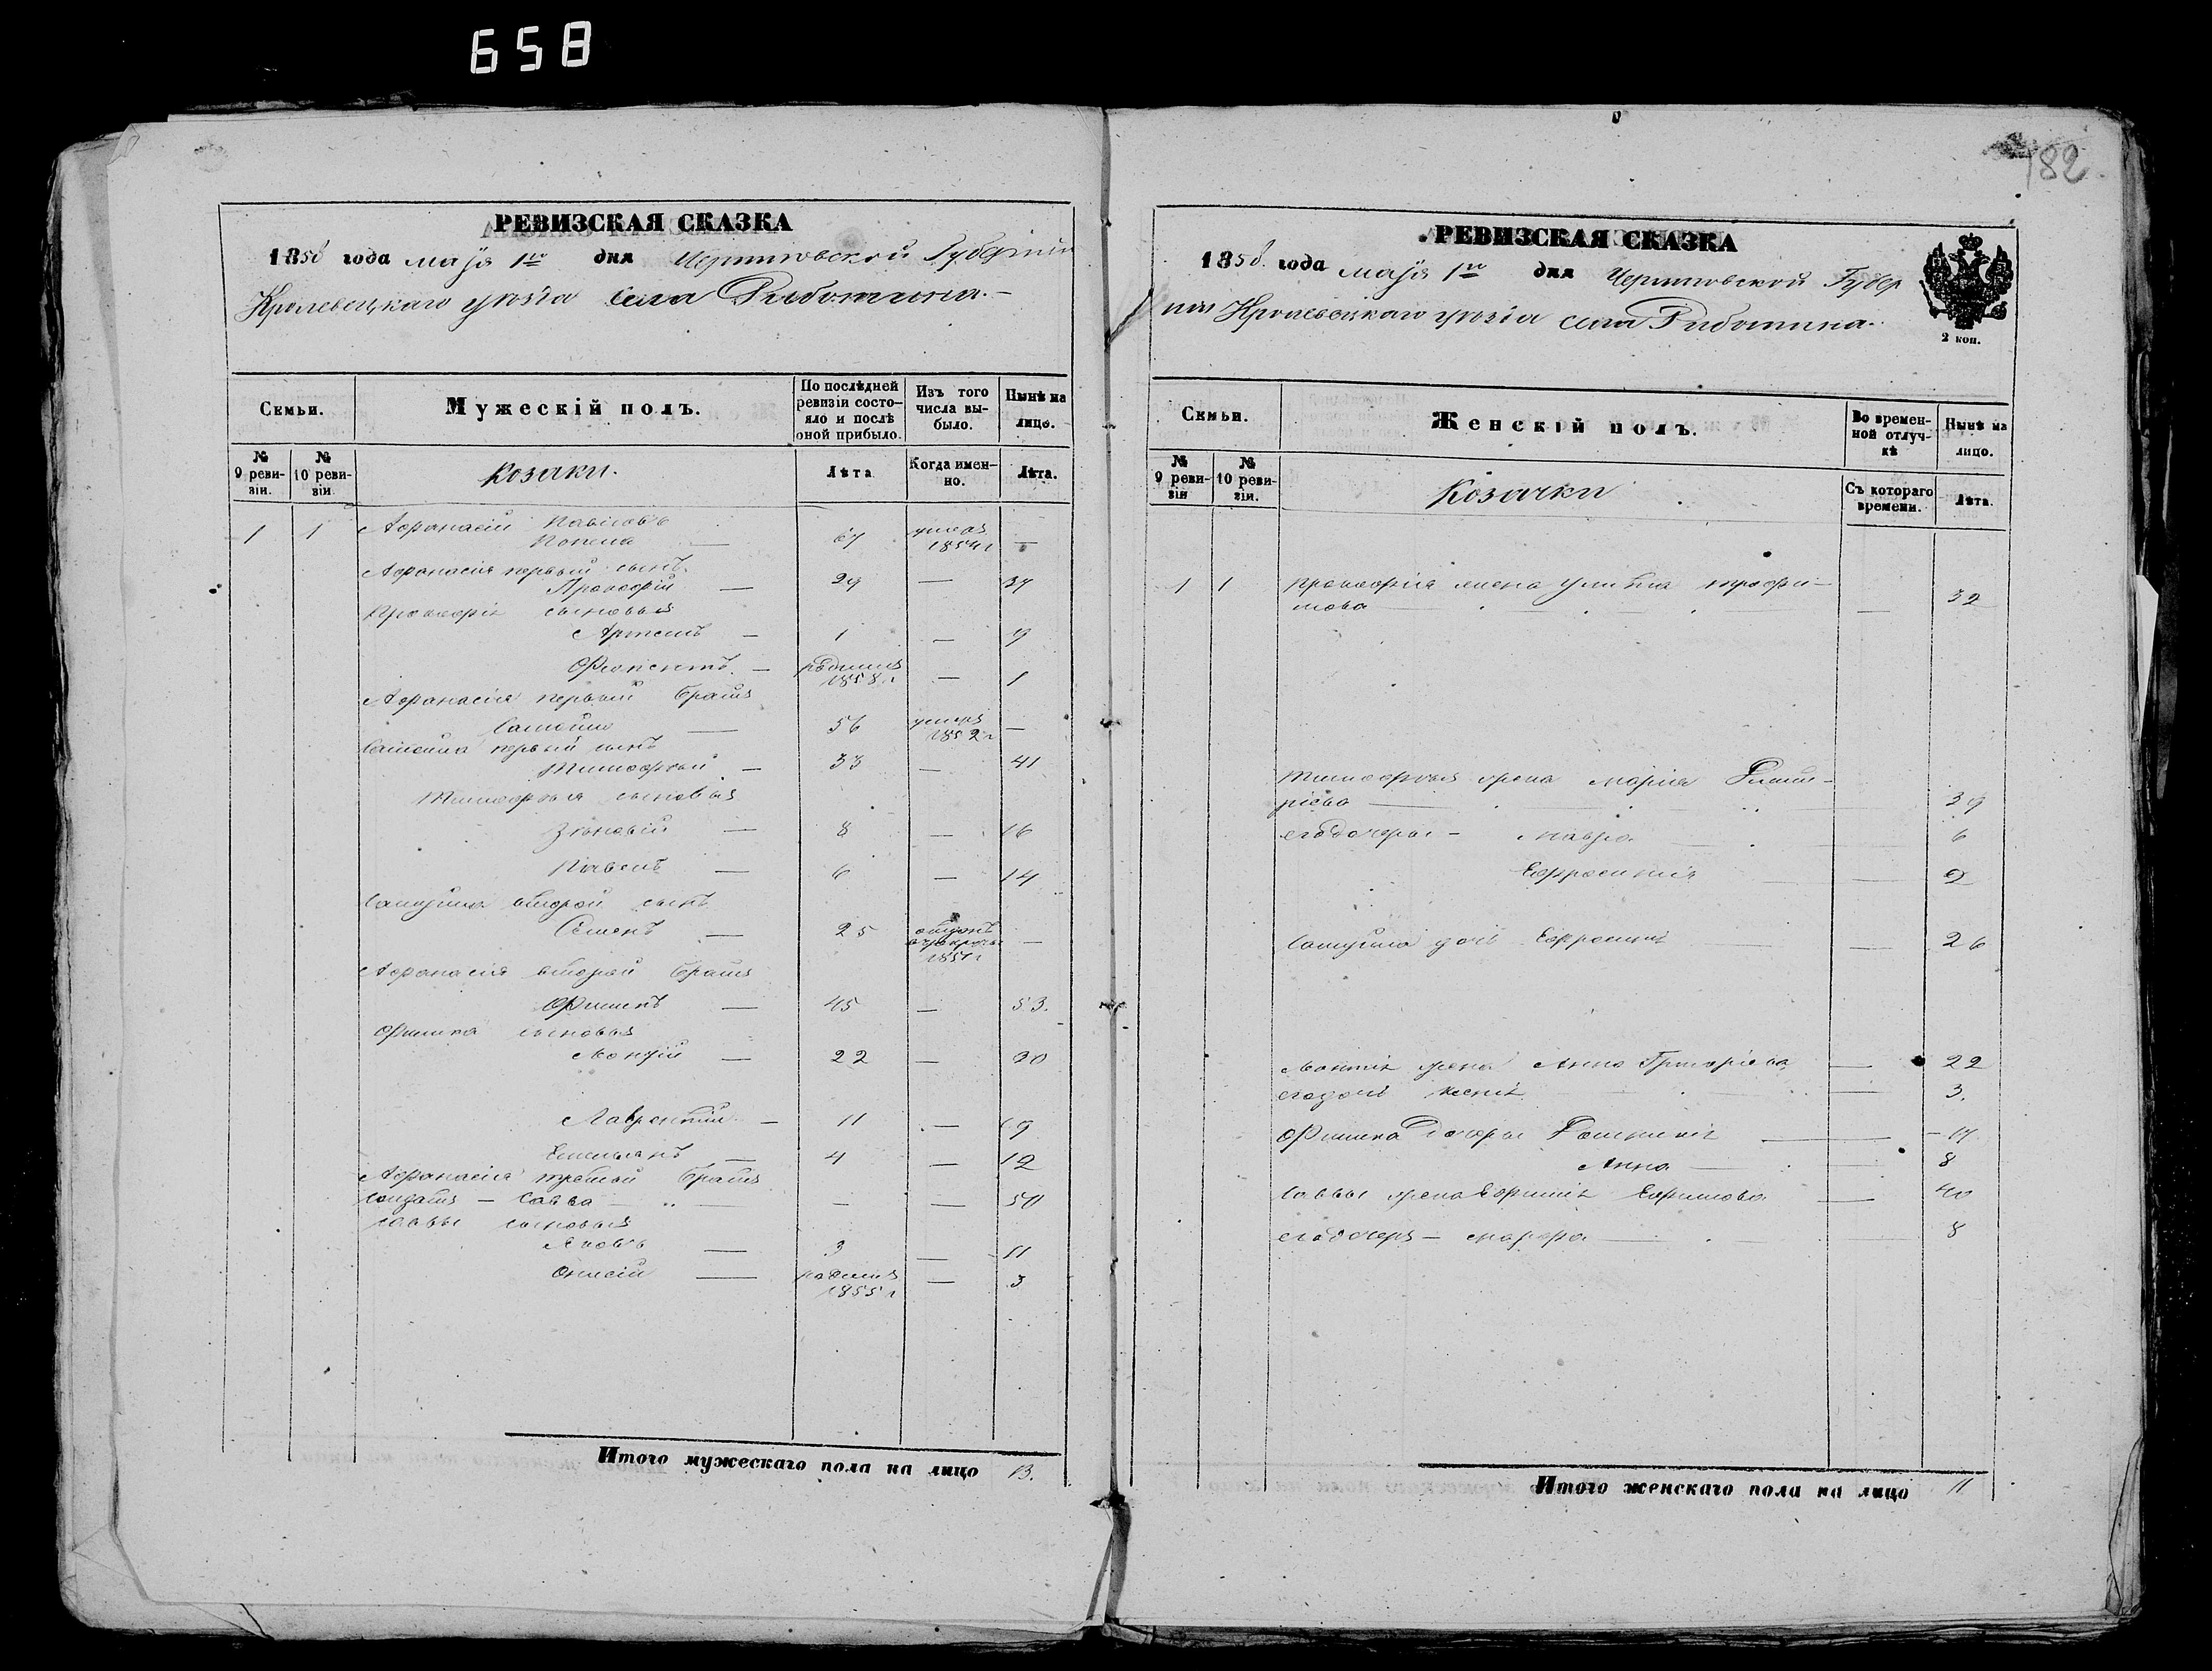 658
182
РЕВИЗСКАЯ СКАЗКА
1858 года мая 1го дня Черниговской Губернии
Кролевецкаго уезда села Риботина.
Семьи.
Мужескій полъ.
По послѣдней ревизіи состо-
яло и послѣ оной прибыло.
Изъ того числа вы-
было.
Нынѣ на лицо.
№ 9 реви-
зіи.
№ 10 реви-
зіи
Козаки.
Лѣта
Когда имен-
но.
Лѣта.
1 1 Афанасій Павловъ
67 умеръ 1854 г —
Афанасія первый сынъ
Прокофій — 29 — 37
Прокофія сыновья
Артемъ — 1 — 9
родился 1858 г — 1
Афанасія первый братъ
Самойло — 56 умеръ 1852 г —
Самойла первый сынъ
Тимофей — 33 — 41
Тимофея сыновья
Зиновій — 8 — 16
Павелъ — 6 — 14
Самуила второй сынъ
Семенъ — 25 1851 г —
Афанасія второй братъ
Филипъ — 45 — 53.
Филипа сыновья
22 — 30
Лаврентій — 11 — 19
Емельянъ — 4 — 12
Афанасія третий братъ
солдатъ — Савва — — — 50
Саввы сыновья
Яковъ — 3 — 11
Онисій — родился 1855 г — 3
Итого мужескаго пола на лицо 13.
РЕВИЗСКАЯ СКАЗКА
1858 года мая 1го дня Черниговской Губер
нии Кролевецкаго уезда села Риботина.
2 коп.
Семьи.
Женскій полъ.
Во времен-
ной отлуч-
кѣ
Нынѣ на лицо.
№ 9 реви-
зіи
№ 10 реви-
зіи.
Козачки
Съ котораго времени.
Лѣта.
1 1 Прокофія жена Улита Трофи-
мова — — 32
Тимофея жена Марія Дмит-
ріева — 39
его дочери — Мавра — 6
Ефросинія — 2
Самуила дочь Ефросинія — 26
жена Анна Григоріева — 22
его дочь — 3.
Филипа дочери — 17
Анна — — 8
Саввы жена Ефимія Ефимова — 40
его дочеря — — 8
Итого женскаго пола на лицо 11